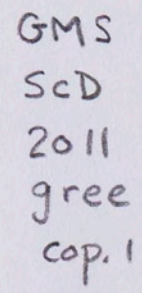 GMS
ScD
2011
gree
cop. 1